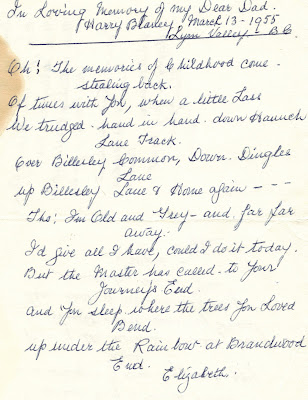 In Loving Memory of my Dear Dad.
(Harry Blaney, March 13-1955
Lynn Valley - B.C.
Oh! The memories of Childhood come -
stealing back.
Of times with You, when a little Lass
We trudged - hand in hand. down Haunch
Lane Track.
Over Billesley Common, Down. Dingles
Lane
up Billesley. Lane & Home again - - -
Tho: I'm Old and Grey - and far far
away.
I'd give all I have, could I do it today.
But the Master has called - to Your
Journey's End.
and You sleep, where the trees You Loved
Bend.
up under the Rainbow at Brandwood
End.
Elizabeth.